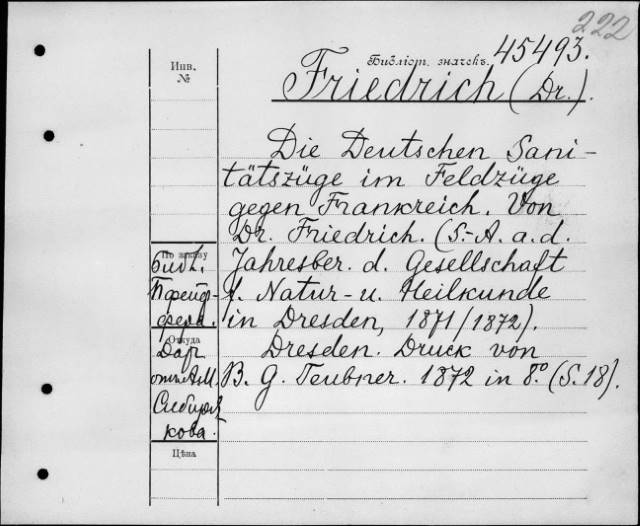 222
Библіот. значекъ. 45493.
Инв.
№
Friedrich (Dr.).
Die Deutschen Sani-
tätszüge im Feldzüge
gegen Frankreich. Von
Dr. Friedrich. (S.-A. a. d.
Jahresber. d. Gesellschaft
f. Natur- u. Heilkunde
in Dresden, 1871/1872).
Dresden. Druck von
B. G. Teubner. 1872 in 8° (S. 18).
По заказу
Библ.
Пфейф-
фера.
Откуда
Дар
отъ А.М.
Сибиря-
кова.
Цѣна